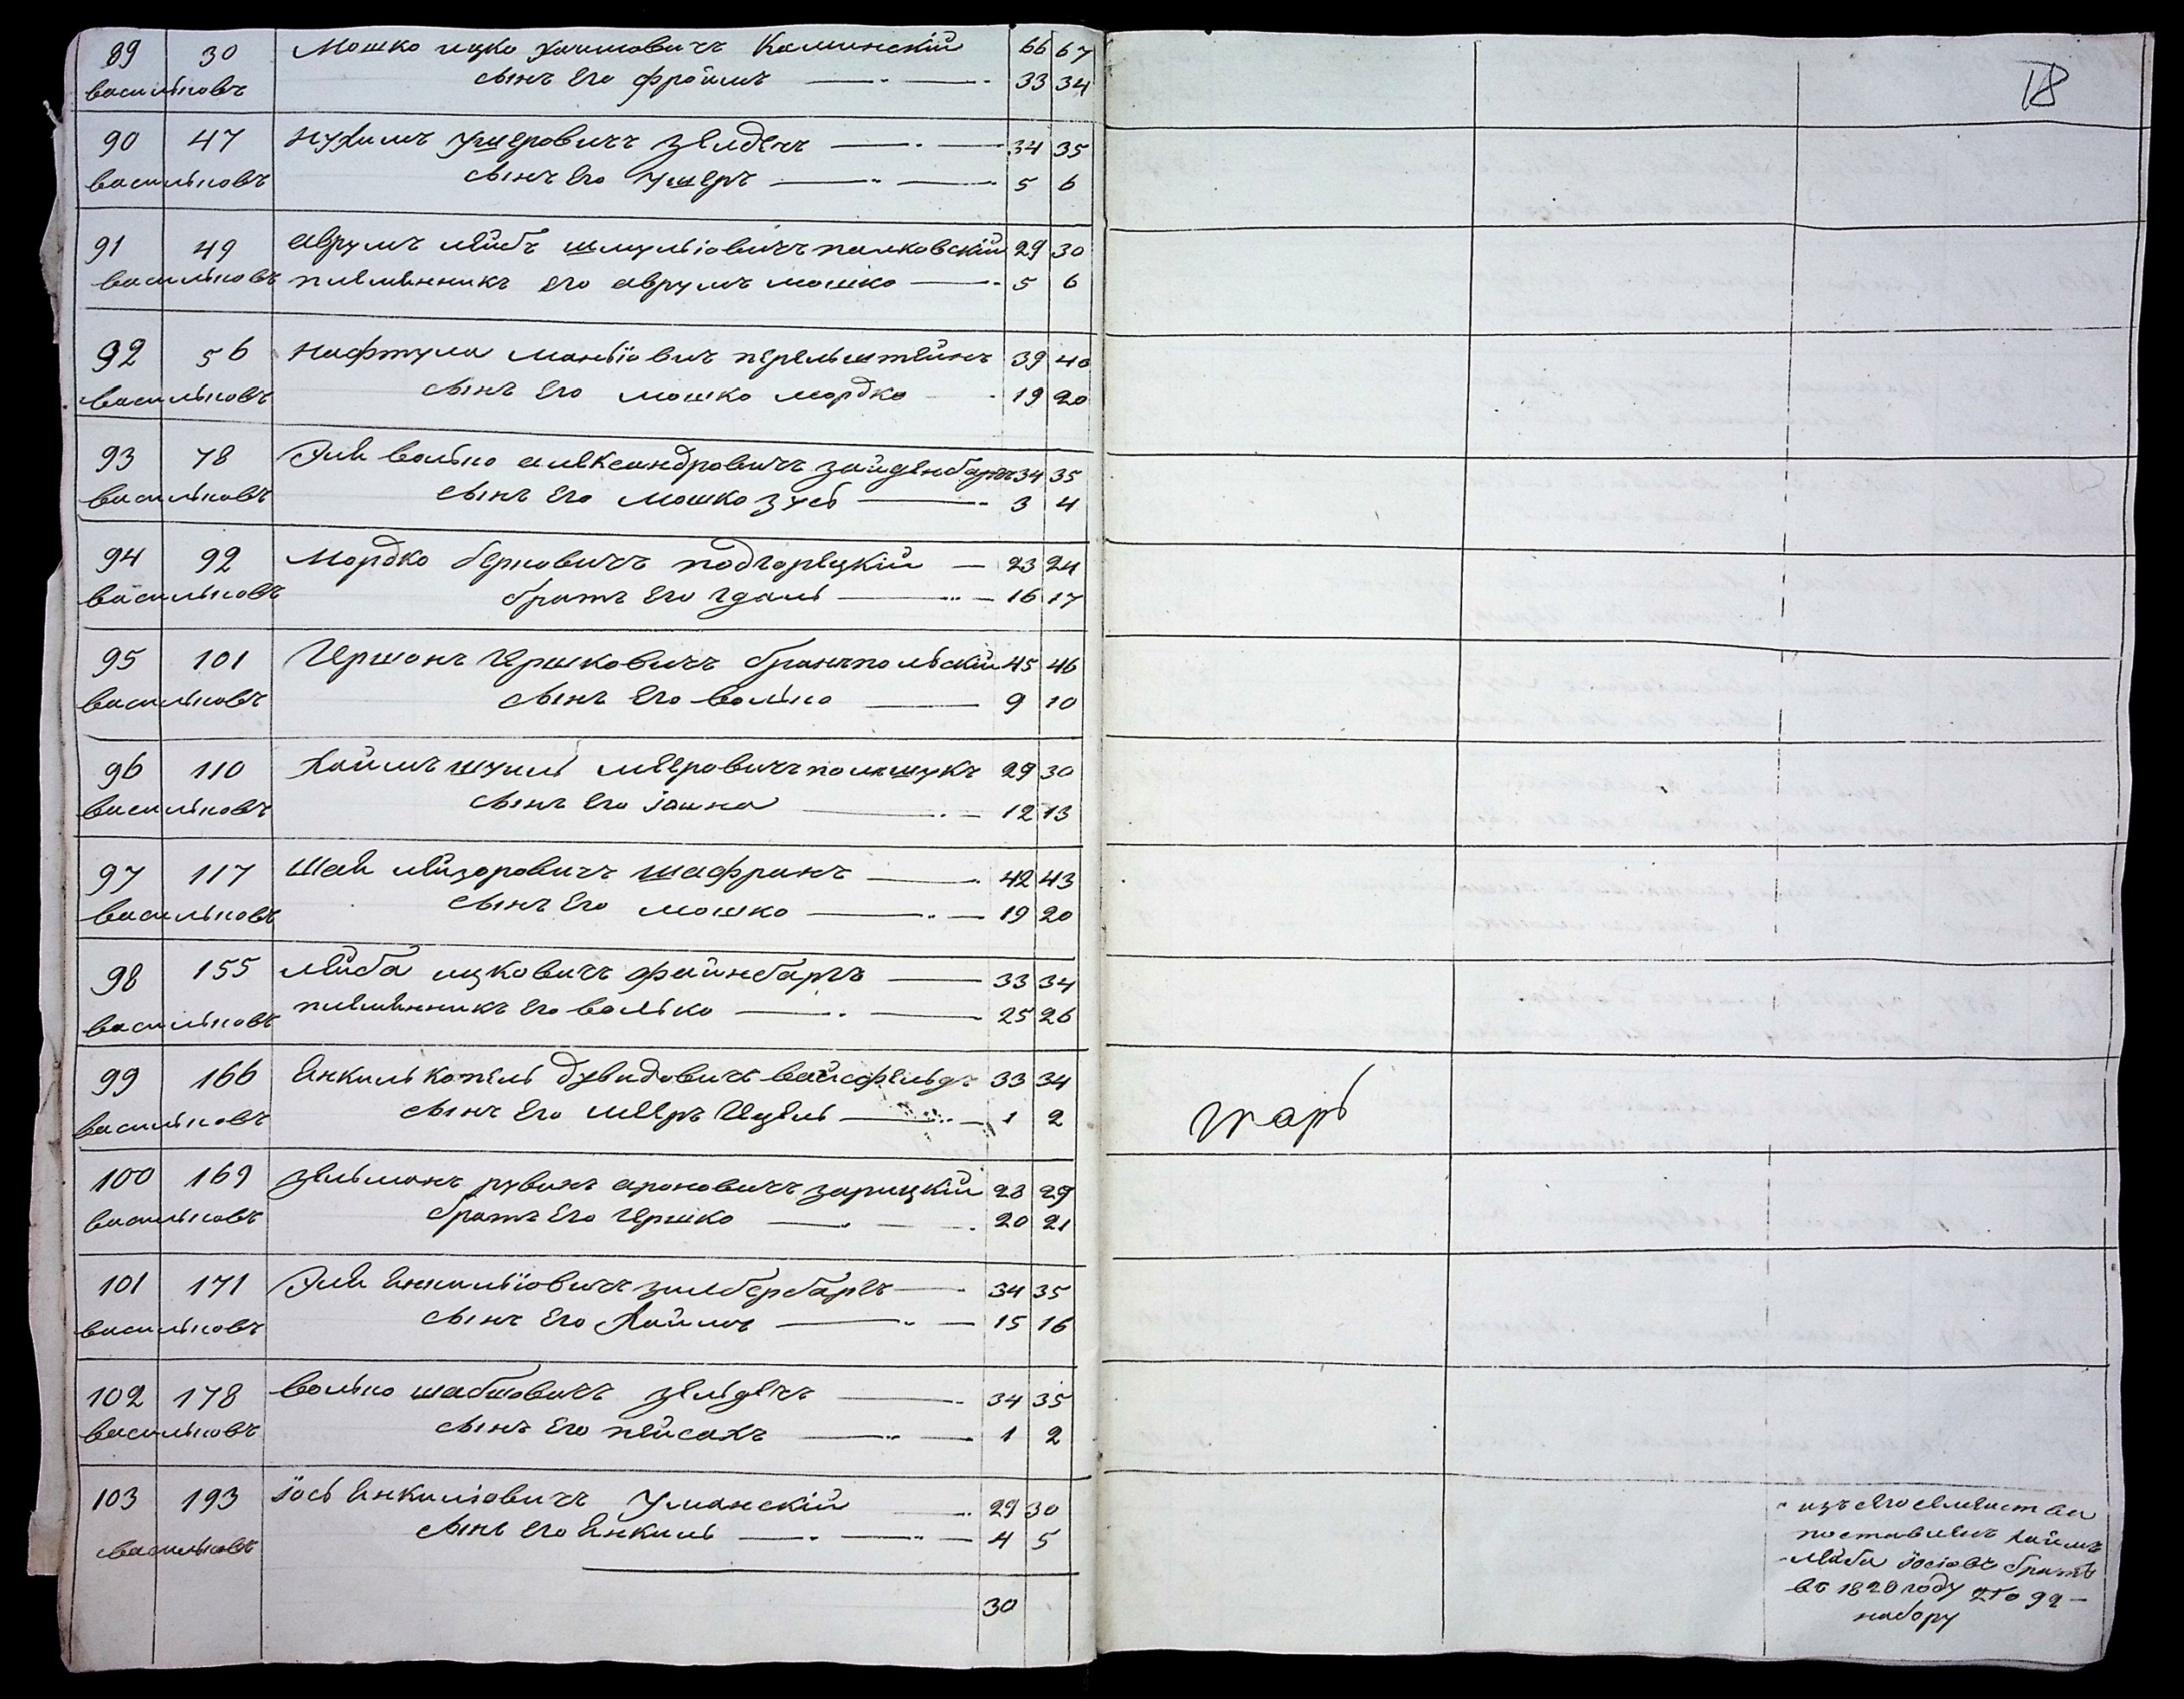 89 30 Мошко ицко хаимовичъ Каминскій 66 67
васильковъ сынъ его фроимъ 33 34
90 47 Нухимъ Ушеровичъ Зейденъ 34 35
васильковъ сынъ его Ушеръ 5 6
91 49 Аврумъ лейбъ шмуліовичъ палковскій 29 30
васильковъ племянникъ его аврумъ мошко 5 6
92 56 Нафтула маньїовичъ перельштейнъ 39 40
васильковъ сынъ его мошко мордко 19 20
93 78 Эля волько александровичъ зайденбаргъ 34 35
васильковъ сынъ его мошко зусь 3 4
94 92 Мордко берковичъ подгорецкій 23 24
васильковъ братъ его гдаль 16 17
95 101 Гершонъ Гершковичъ 45 46
васильковъ сынъ его волько 9 10
96 110 Хаймъ шулим меировичъ полищукъ 29 30
васильковъ сынъ его іосика 12 13
97 117 Шая лейзоровичъ шафранъ 42 43
васильковъ сынъ его мошко 19 20
98 155 Лейба ицковичъ файнбаргъ 33 34
васильковъ племянникъ его волько 25 26
99 166 Янкиль копель дувидовичъ вайсфельдъ 33 34
васильковъ сынъ его меиръ Гецель 1 2
100 169 Зельманъ рувинъ ароновичъ зарицкій 28 29
васильковъ братъ его Гершко 20 21
101 171 Эля янкильїовичъ зилбербаргъ 34 35
васильковъ сынъ его Хаимъ 15 16
102 178 Волько шабшовичъ зельденъ 34 35
васильковъ сынъ его пейсахъ 1 2
103 193 іось янкиліовичъ Уманскій 29 30
васильковъ сынъ его янкиль 4 5
30
18
изъ его семейства
поставленъ хаимъ
лейба іосіовъ братъ
въ 1828 году 2го 92
набору